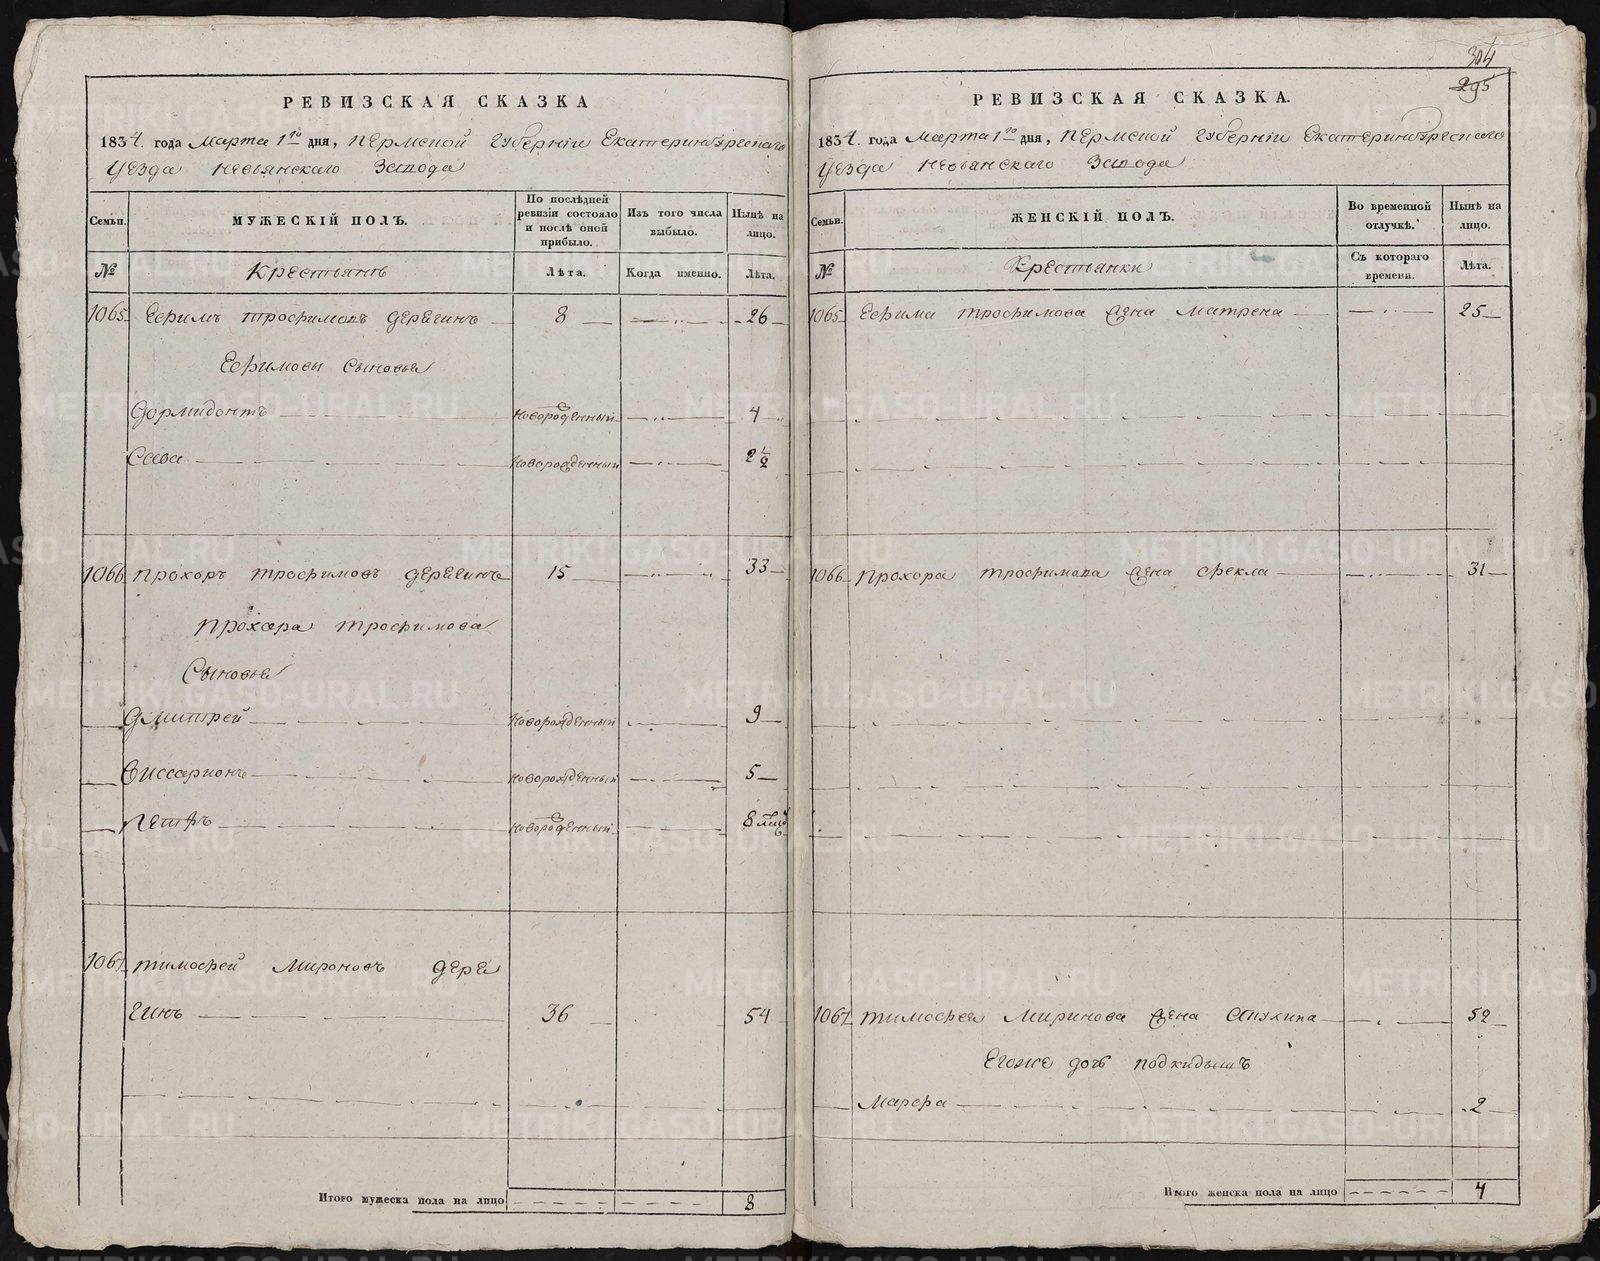 304
295
РЕВИЗСКАЯ СКАЗКА
1834. года Марта 1го дня, Пермской Губернии Екатеринбургскаго
Уезда Невьянскаго Завода
Семьи.
МУЖЕСКІЙ ПОЛЪ.
По послѣдней ревизіи состояло и послѣ оной прибыло.
Изъ того числа выбыло.
Нынѣ на лицо.
№
Крестьянъ
Лѣта.
Когда именно.
Лѣта.
1065 Ефимъ Трофимовъ Дерягинъ 8 26
Ефимовы сыновья
Дормидонтъ новорожденный 4
Савва новорожденный 2 1/2
1066 Прохоръ Трофимовъ Дерегинъ 15 33
Прохора Трофимова
Сыновья
Дмитрей новорожденный 9
Виссарионъ новорожденный 5
Петръ новорожденный 8
1067 Тимофей Мироновъ Дере
гинъ 36 54
Итого мужеска пола на лицо 8
РЕВИЗСКАЯ СКАЗКА.
1834. года Марта 1го дня, Пермской Губернии Екатеринбургскаго
Уезда Невьянскаго Завода
Семьи.
ЖЕНСКІЙ ПОЛЪ.
Во временной отлучкѣ.
Нынѣ на лицо.
№
Крестьянки
Съ котораго времени.
Лѣта.
1065 Ефима Трофимова жена Матрена 25
1066 Прохора Трофимова жена Фекла 31
1067 Тимофея Миринова жена 52
Егоже дочь подкидышъ
Марфа 2
Итого женска пола на лицо 4
METRIKI.GASO-URAL.RU